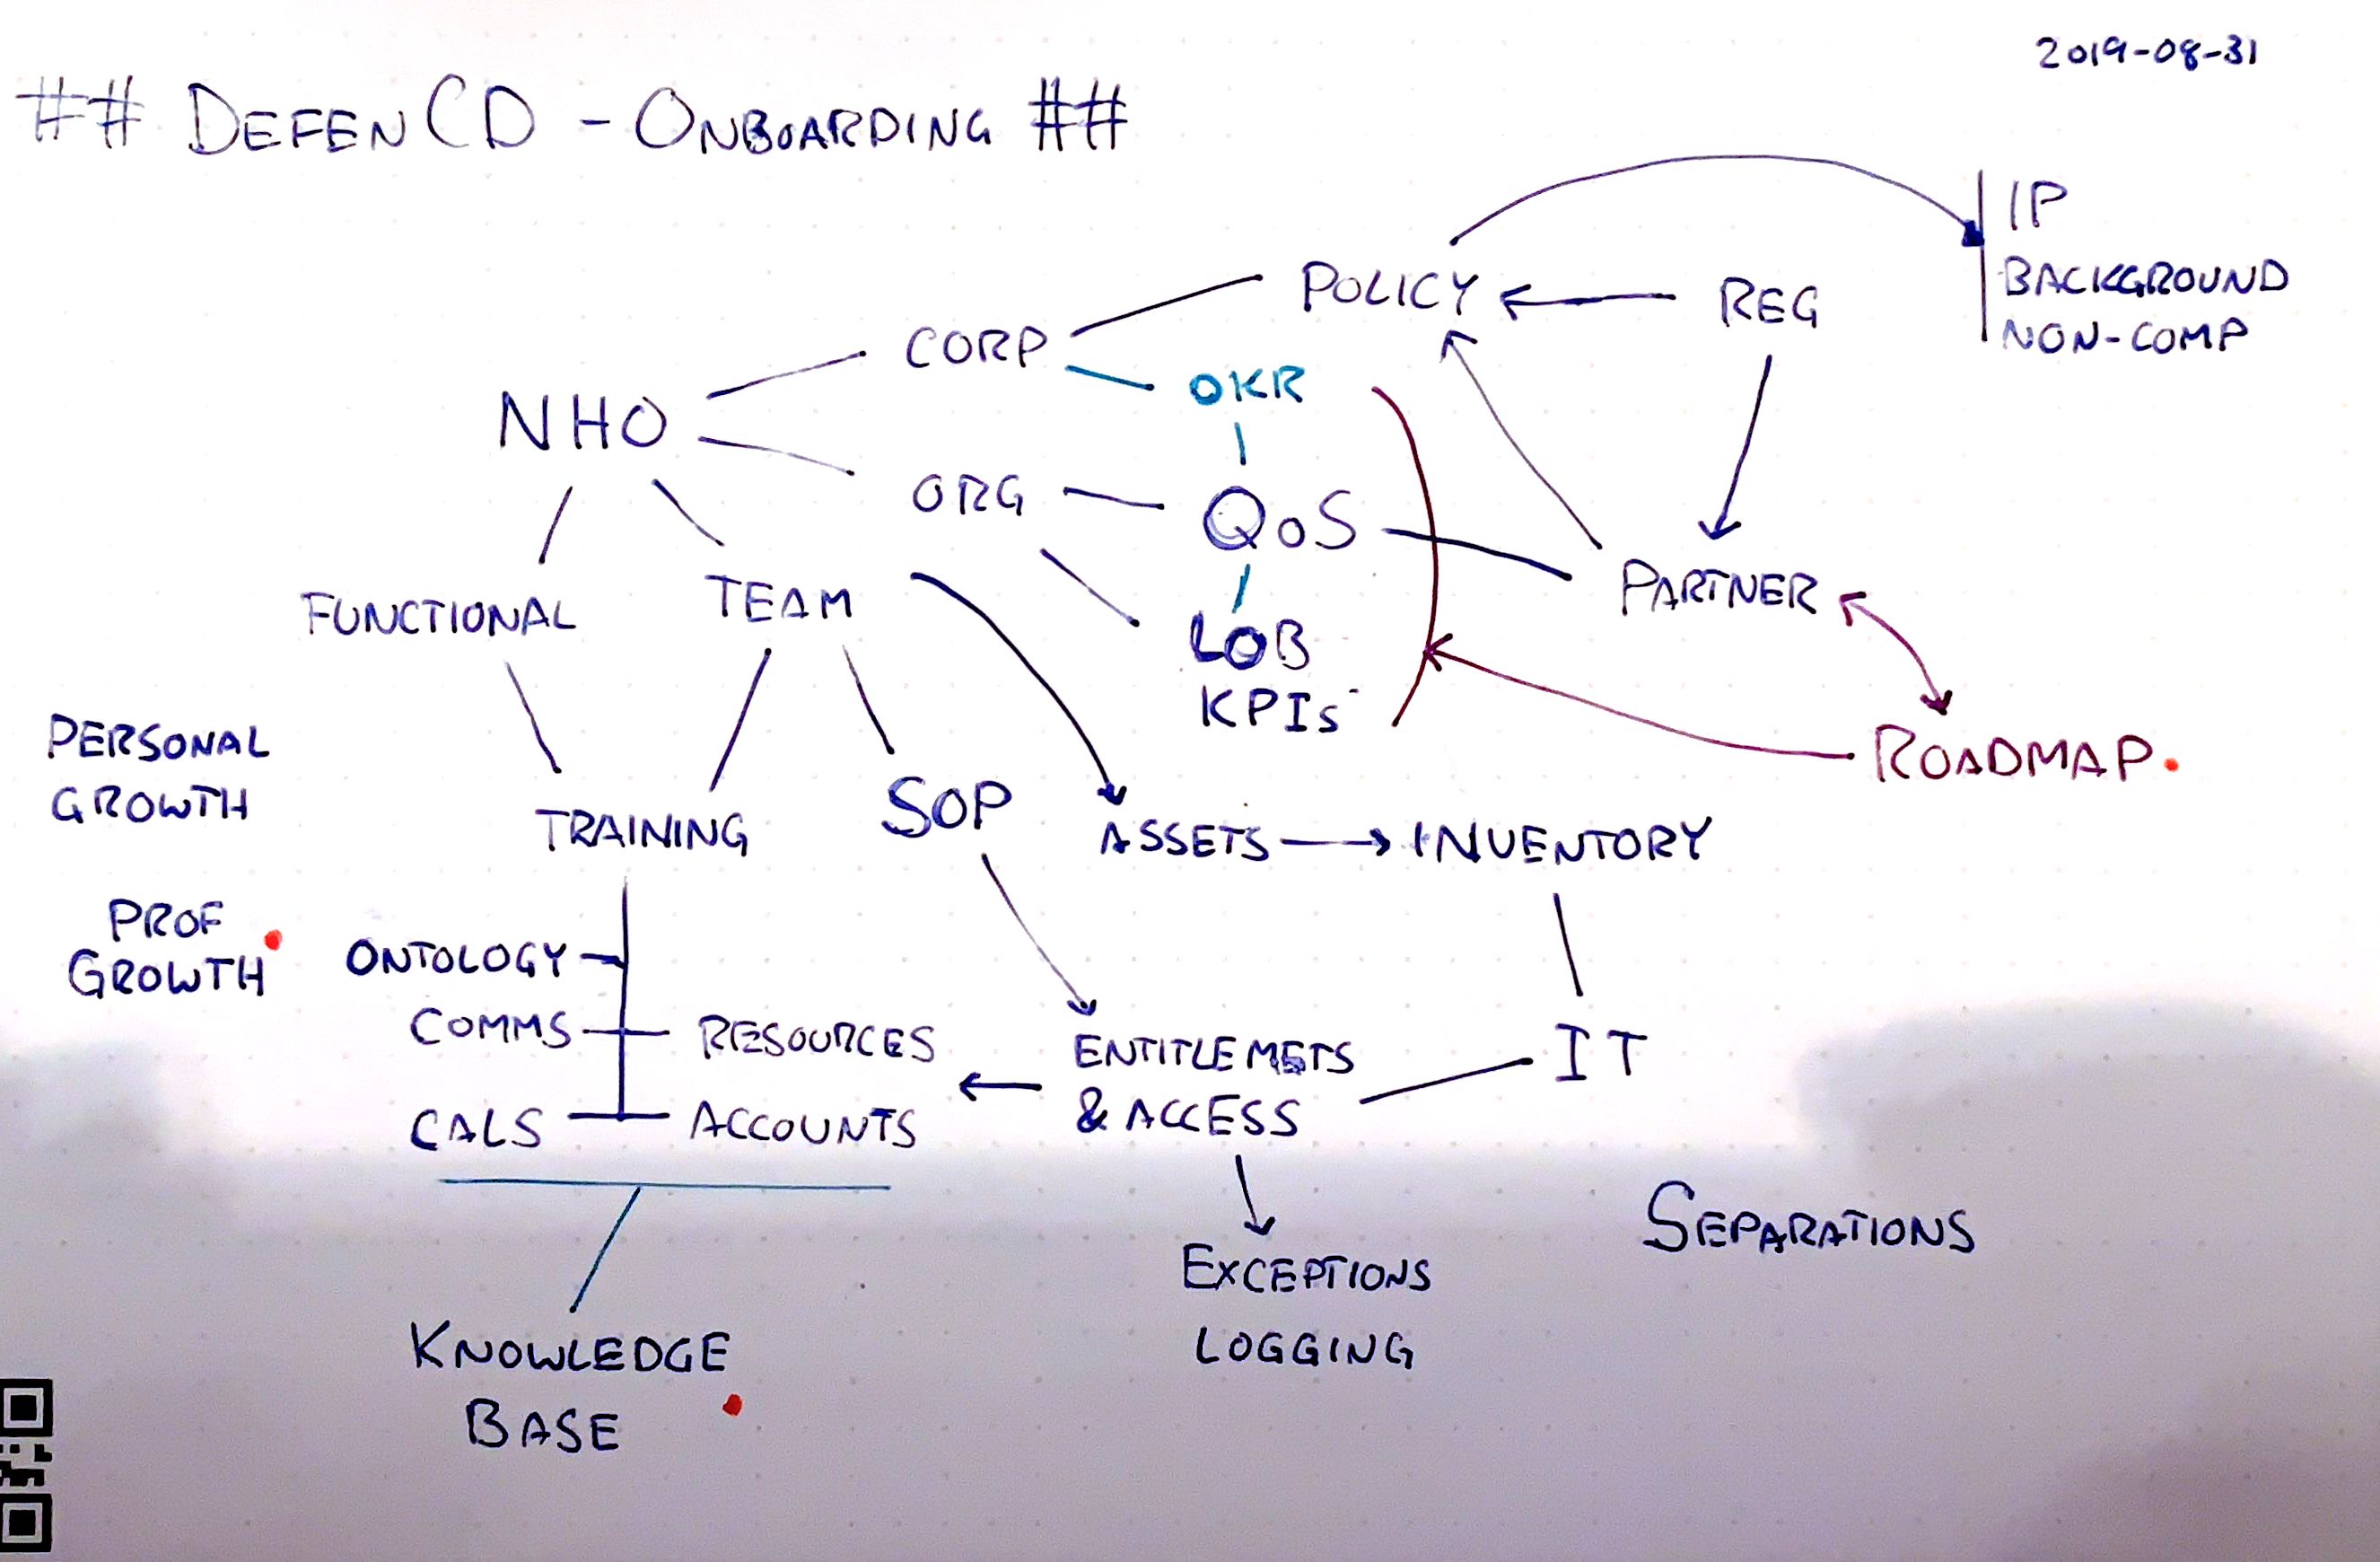 2019-08-31
## DEFENCD - ONBOARDING ##
IP
BACKGROUND
NON-COMP
POLICY
REG
CORP
OKR
NHO
ORG
QoS
PARTNER
FUNCTIONAL
TEAM
LOB
KPIs
ROADMAP
PERSONAL
GROWTH
TRAINING
SOP
ASSETS
INVENTORY
PROF
GROWTH
ONTOLOGY
COMMS
RESOURCES
ENTITLEMETS
& ACCESS
IT
CALS
ACCOUNTS
SEPARATIONS
EXCEPTIONS
LOGGING
KNOWLEDGE
BASE